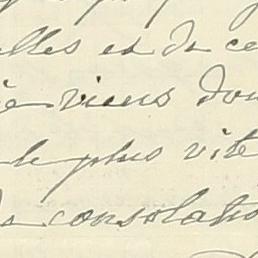 elles et de ce
je viens don
le plus vite
de consolatio